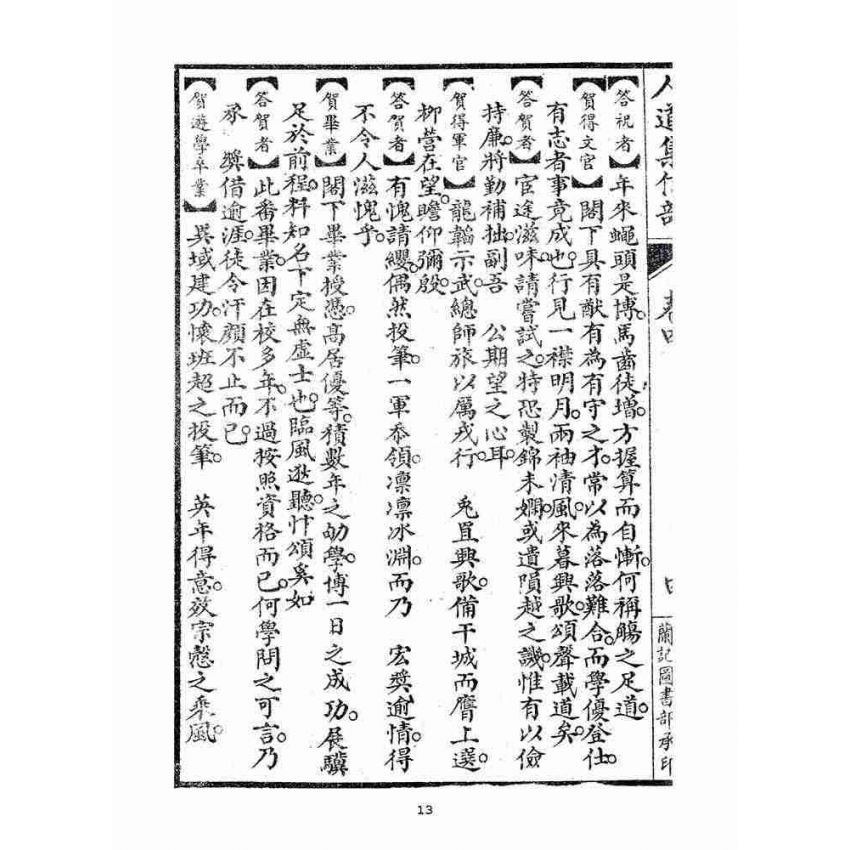 人道集
卷四
四
蘭記圖書部承印
【答祝者】年來蠅頭是博。馬齒徒增。方握算而自慚。何稱觴之足道。
【賀得文官】閣下具有猷有為有守之才。常以為落落難合。而學優登仕。
有志者事竟成也。行見一襟明月。兩袖清風。來暮興歌。頌聲載道矣。
【答賀者】宦途滋味。請嘗試之。特恐製錦未嫻。或遺隕越之譏。惟有以儉
持廉。將勤補拙。副吾 公期望之心耳。
【賀得軍官】龍韜示武。總師旅以厲戎行。 兎罝興歌。備干城而膺上選。
柳營在望。瞻仰彌殷。
【答賀者】有愧請纓。偶然投筆。一軍忝領。凛凛冰淵。而乃 宏獎逾情。得
不令人滋愧乎。
【賀畢業】閣下畢業授憑。高居優等。積數年之劬學。博一日之成功。展驥
足於前程。料知名下定無虛士也。臨風逖聽。忭頌奚如
【答賀者】此番畢業。因在校多年。不過按照資格而已。何學問之可言。乃
承 獎借逾涯。徒令汗顏不止而已。
【賀遊學卒業】異域建功。懷班超之投筆。 英年得意。效宗愨之乘風。
13